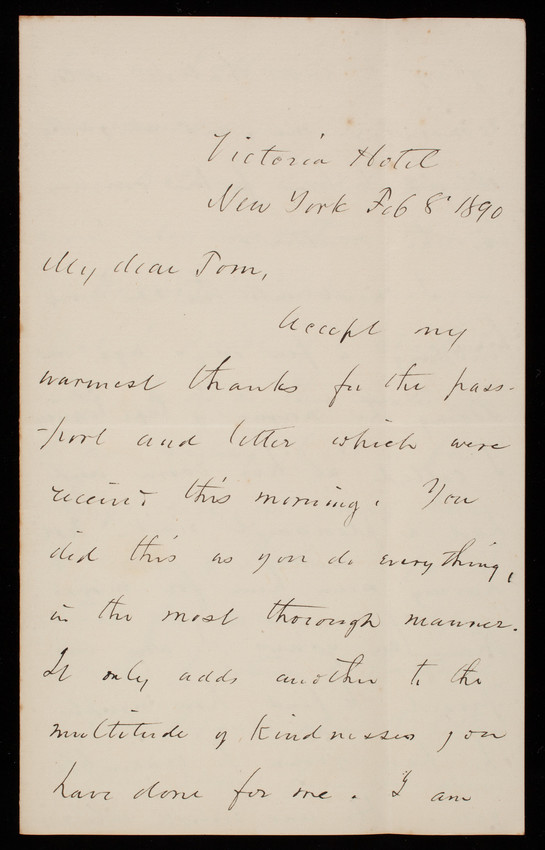 Victoria Hotel
New York Feb 8' 1890
My dear Tom,
Accept my
warmest thanks for the pass-
-port and letter which were
receiv'd this morning. You
did this as you do everything,
in the most thorough manner.
It only adds another to the
multitude of kindnesses you
have done for me. I am